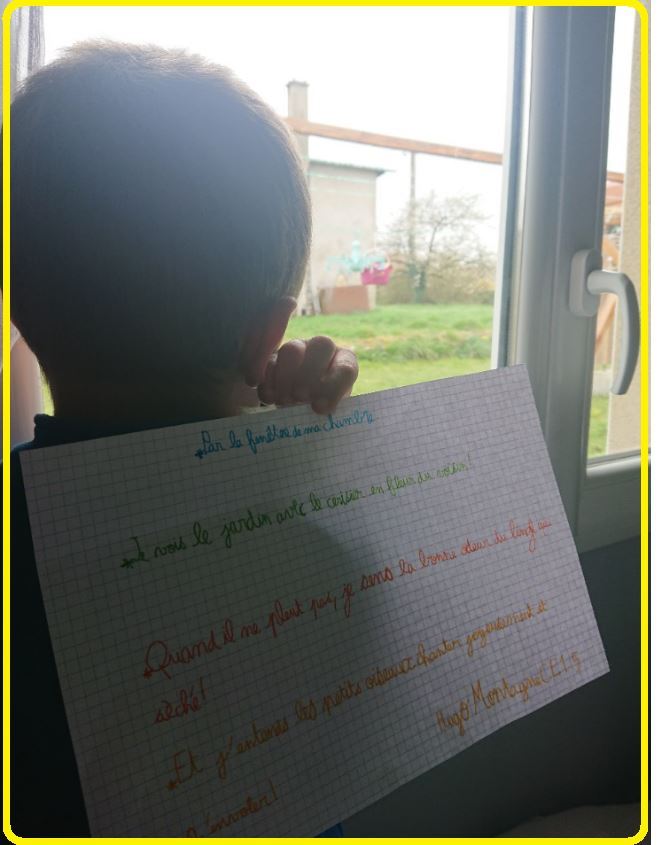 *Par la fenêtre de ma chambre
*Je vois le jardin avec le cerisier en fleur du voisin!
*Quand il ne pleut pas, je sens la bonne odeur du linge qui
sèche!
*Et j'entends les petits oiseaux chanter joyeusement et
s'envoler!
Hugo Montagnié CE1.5